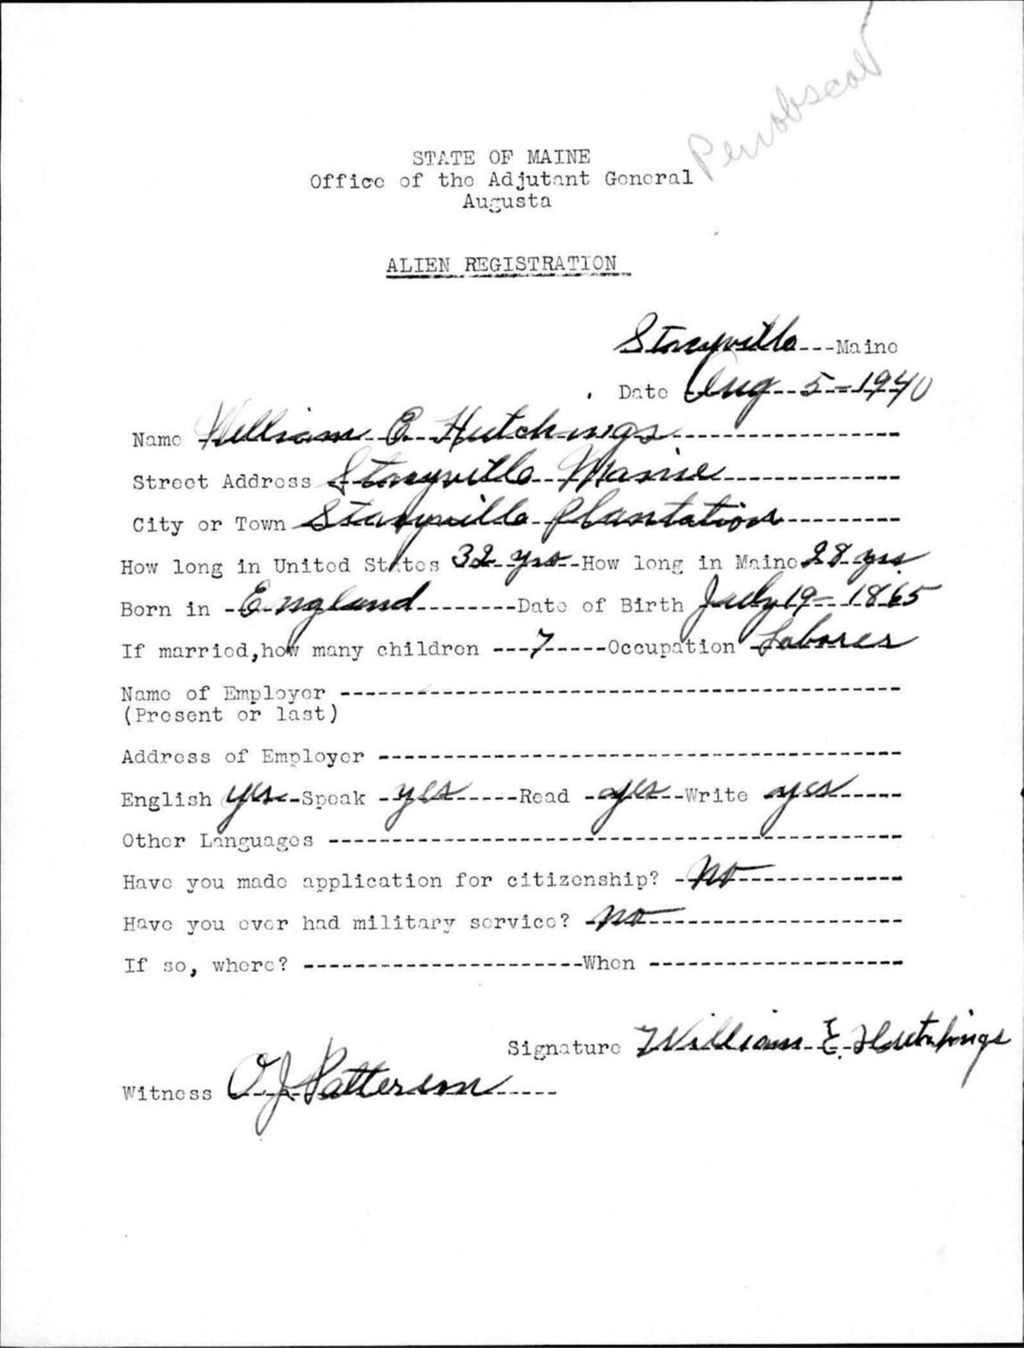 Penobscot
STATE OF MAINE
Office of the Adjutant General
Augusta
ALIEN REGISTRATION
Stacyville Maine
Date Aug 5-1940
Name William E. Hutchings
Street Address Stacyville Maine
City or Town Stacyville Plantation
How long in United States 32 yrs How long in Maine 28 yrs
Born in England Date of Birth July 19-1865
If married, how many children 7 Occupation Laborer
Name of Employer
(Present or last)
Address of Employer
English yes Speak yes Read yes Write yes
Other Languages
Have you made application for citizenship? No
Have you ever had military service? no
If so, where? When
Signature William E. Hutchings
Witness O J Patterson